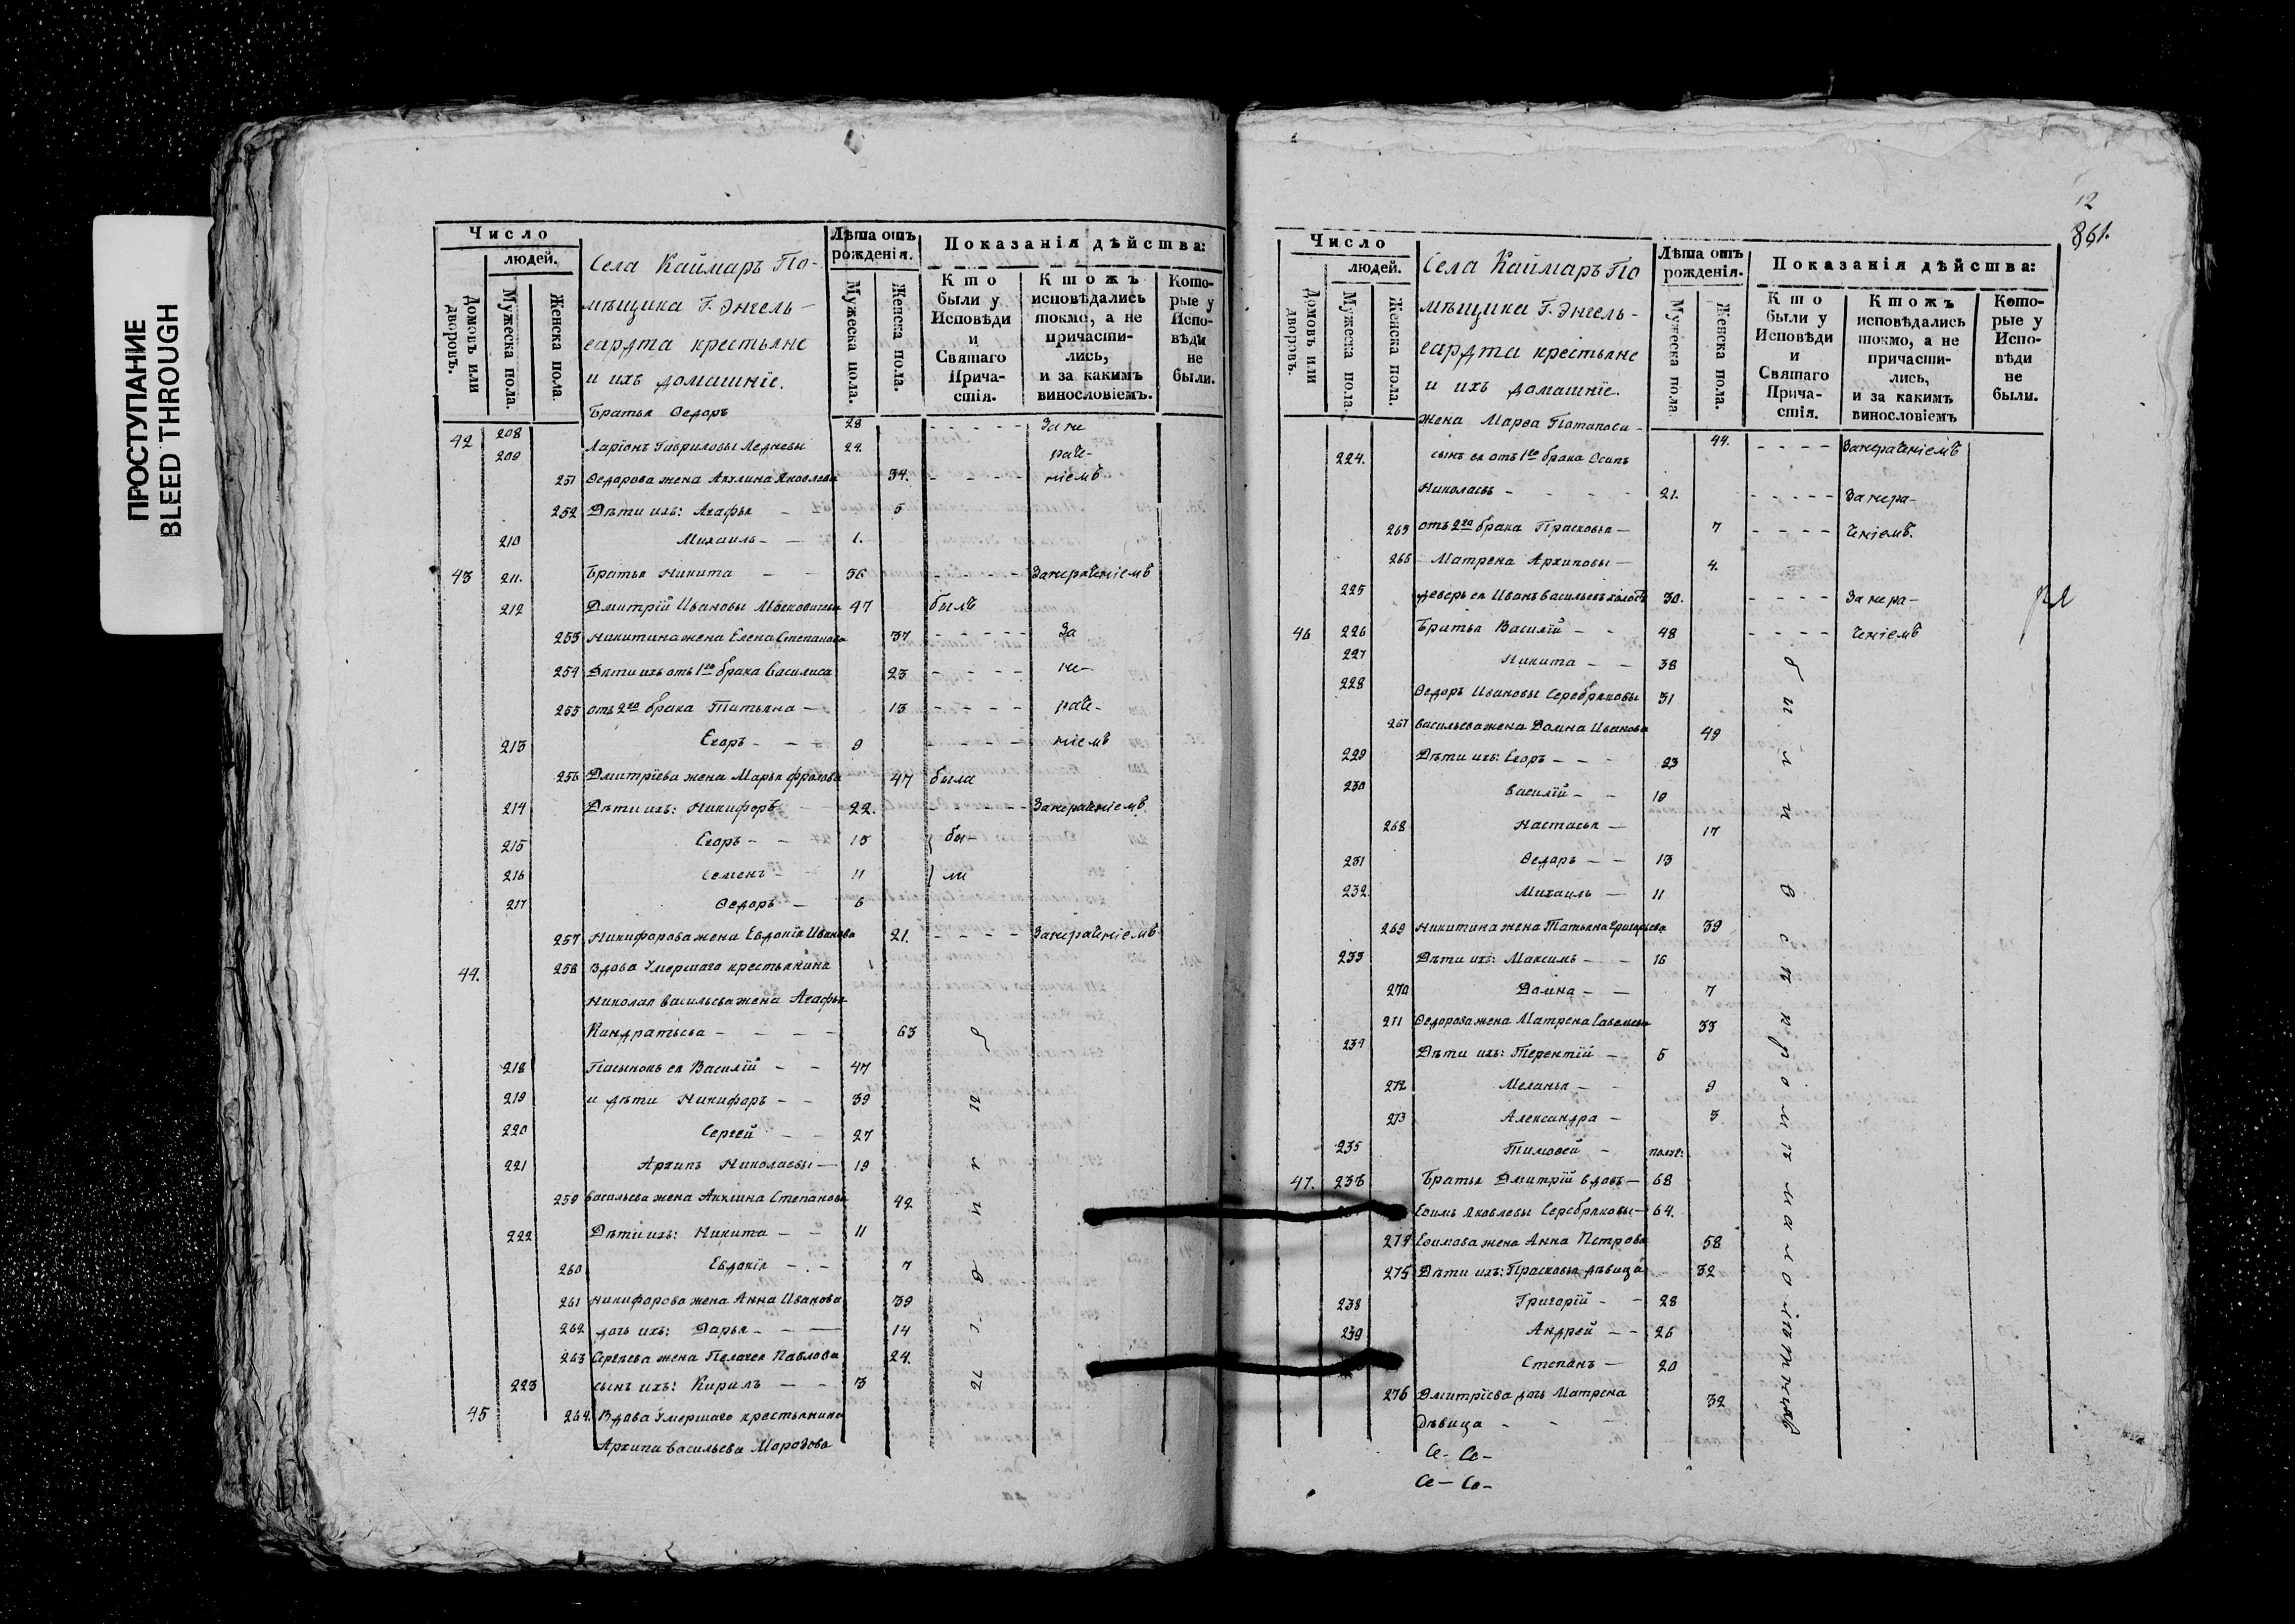 ПРОСТУПАНИЕ
BLEED THROUGH
Число
людей.
Домовъ или дворовъ.
Мужеска пола.
Женска пола.
Села Каймаръ По-
мѣщика Г. Энгель-
гардта крестьяне
и ихъ домашніе.
Лѣта отъ рожденія.
Мужеска пола.
Женска пола.
Показанія дѣйства:
Кто были у Исповѣди и Святаго Прича-стія.
Ктожъ исповѣдались токмо, а не причасти-лись, и за какимъ винословіемъ.
Кото-рые у Испо-вѣди не были.
42 208 Братья Ѳедоръ 28 - - - - - За не
209 Ларіонъ Гавриловы 24. раче-
251 Ѳедорова жена Акулина Яковлева 34. - - - - ніемъ
252 Дѣти ихъ: Агафья - 5
210 Михаилъ - - 1.
43 211. Братья Никита - - 56 - - - - - Занераченіемъ
212 Дмитрій Ивановы 47 былъ
253 Никитина жена Елена Степанова 37 - - - - - За
254 Дѣти ихъ отъ 1го брака Василиса 23 - - - - не-
255 отъ 2го брака Татьяна - 13 - - - - раче-
213 Егоръ - - - 9 - - - - - ніемъ
256 Дмитріева жена Марья Фролова 47 была
214 Дѣти ихъ: Никифоръ 22. - - - - - Занераченіемъ.
215 Егоръ - - 13 бы-
216 Семенъ - 11 ли
217 Ѳедоръ - 6
257 Никифорова жена Евдокія Иванова 21. - - - - Занераченіемъ
44. 258 Вдова Умершаго крестьянина
Николая Васильева жена Агафья
Кандратьева - - - - 63
218 Пасынокъ ея Василій - - 47
219 и дѣти Никифоръ - - 39
220 Сергей - - 27
221 Архипъ Николаевы - 19
259 Васильева жена Акулина Степанова 42
222 Дѣти ихъ: Никита - - 11
260 Евдокія - - - 7
261 Никифорова жена Анна Иванова 39
262 дочь ихъ: Дарья - - — 14
263 Сергеева жена Пелагея Павлова 24.
223 сынъ ихъ: Кирилъ - - 3
45 264. Вдова Умершаго крестьянина
Архипа Васильева Морозова
были вси
12
861.
Число
людей.
Домовъ или дворовъ.
Мужеска пола.
Женска пола.
Села Каймаръ По
мѣщика Г. Энгель-
гардта крестьяне
и ихъ домашніе.
Лѣта отъ рожденія.
Мужеска пола.
Женска пола.
Показанія дѣйства:
Кто были у Исповѣди и Святаго Прича-стія.
Ктожъ исповѣдались токмо, а не причасти-лись, и за какимъ винословіемъ
Кото-рые у Испо-вѣди не были.
жена Марѳа 44. - - - - Занераченіемъ
224. сынъ ея отъ 1го брака Осипъ
Николаевъ - - - - 21. - - - - - За нера-
265 отъ 2го брака Прасковья - 7 - - - - ченіемъ.
266 Матрена Архиповы - 4.
225 деверь ея Иванъ Васильевъ холостъ 30. - - - - За нера-
46 226 Братья Василій - - 48 - - - - ченіемъ
227 Никита - - 38
228 Ѳедоръ Ивановы Серебряковы 31
267 Васильева жена Домна Иванова 49
229 Дѣти ихъ: Егоръ - - - 23
230 Василій - - 19
268 Настасья - 17
231 Ѳедоръ - - 13
232. Михаилъ - 11
269 Никитина жена Татьяна Григорьева 39
233 Дѣти ихъ: Максимъ - - 16
270 Домна - - 7
271 Ѳедорова жена Матрена Савельева 33
234 Дѣти ихъ: Терентій - 5
272 Меланья - - 9
273 Александра - 3
235 Тимоѳей - полг:
47. 236 Братья Дмитрій вдовъ - 68
Ефимъ Яковлевы Серебряковы - 64.
274 Ефимова жена Анна Петрова 58
275 Дѣти ихъ: Прасковья дѣвица 32
238 Григорій - - 28
239 Андрей - - 26
Степанъ - 20
276 Дмитріева дочь Матрена 32
Дѣвица - - -
были вси кромѣ малолѣтнихъ
Се- Се-
Се- Се-